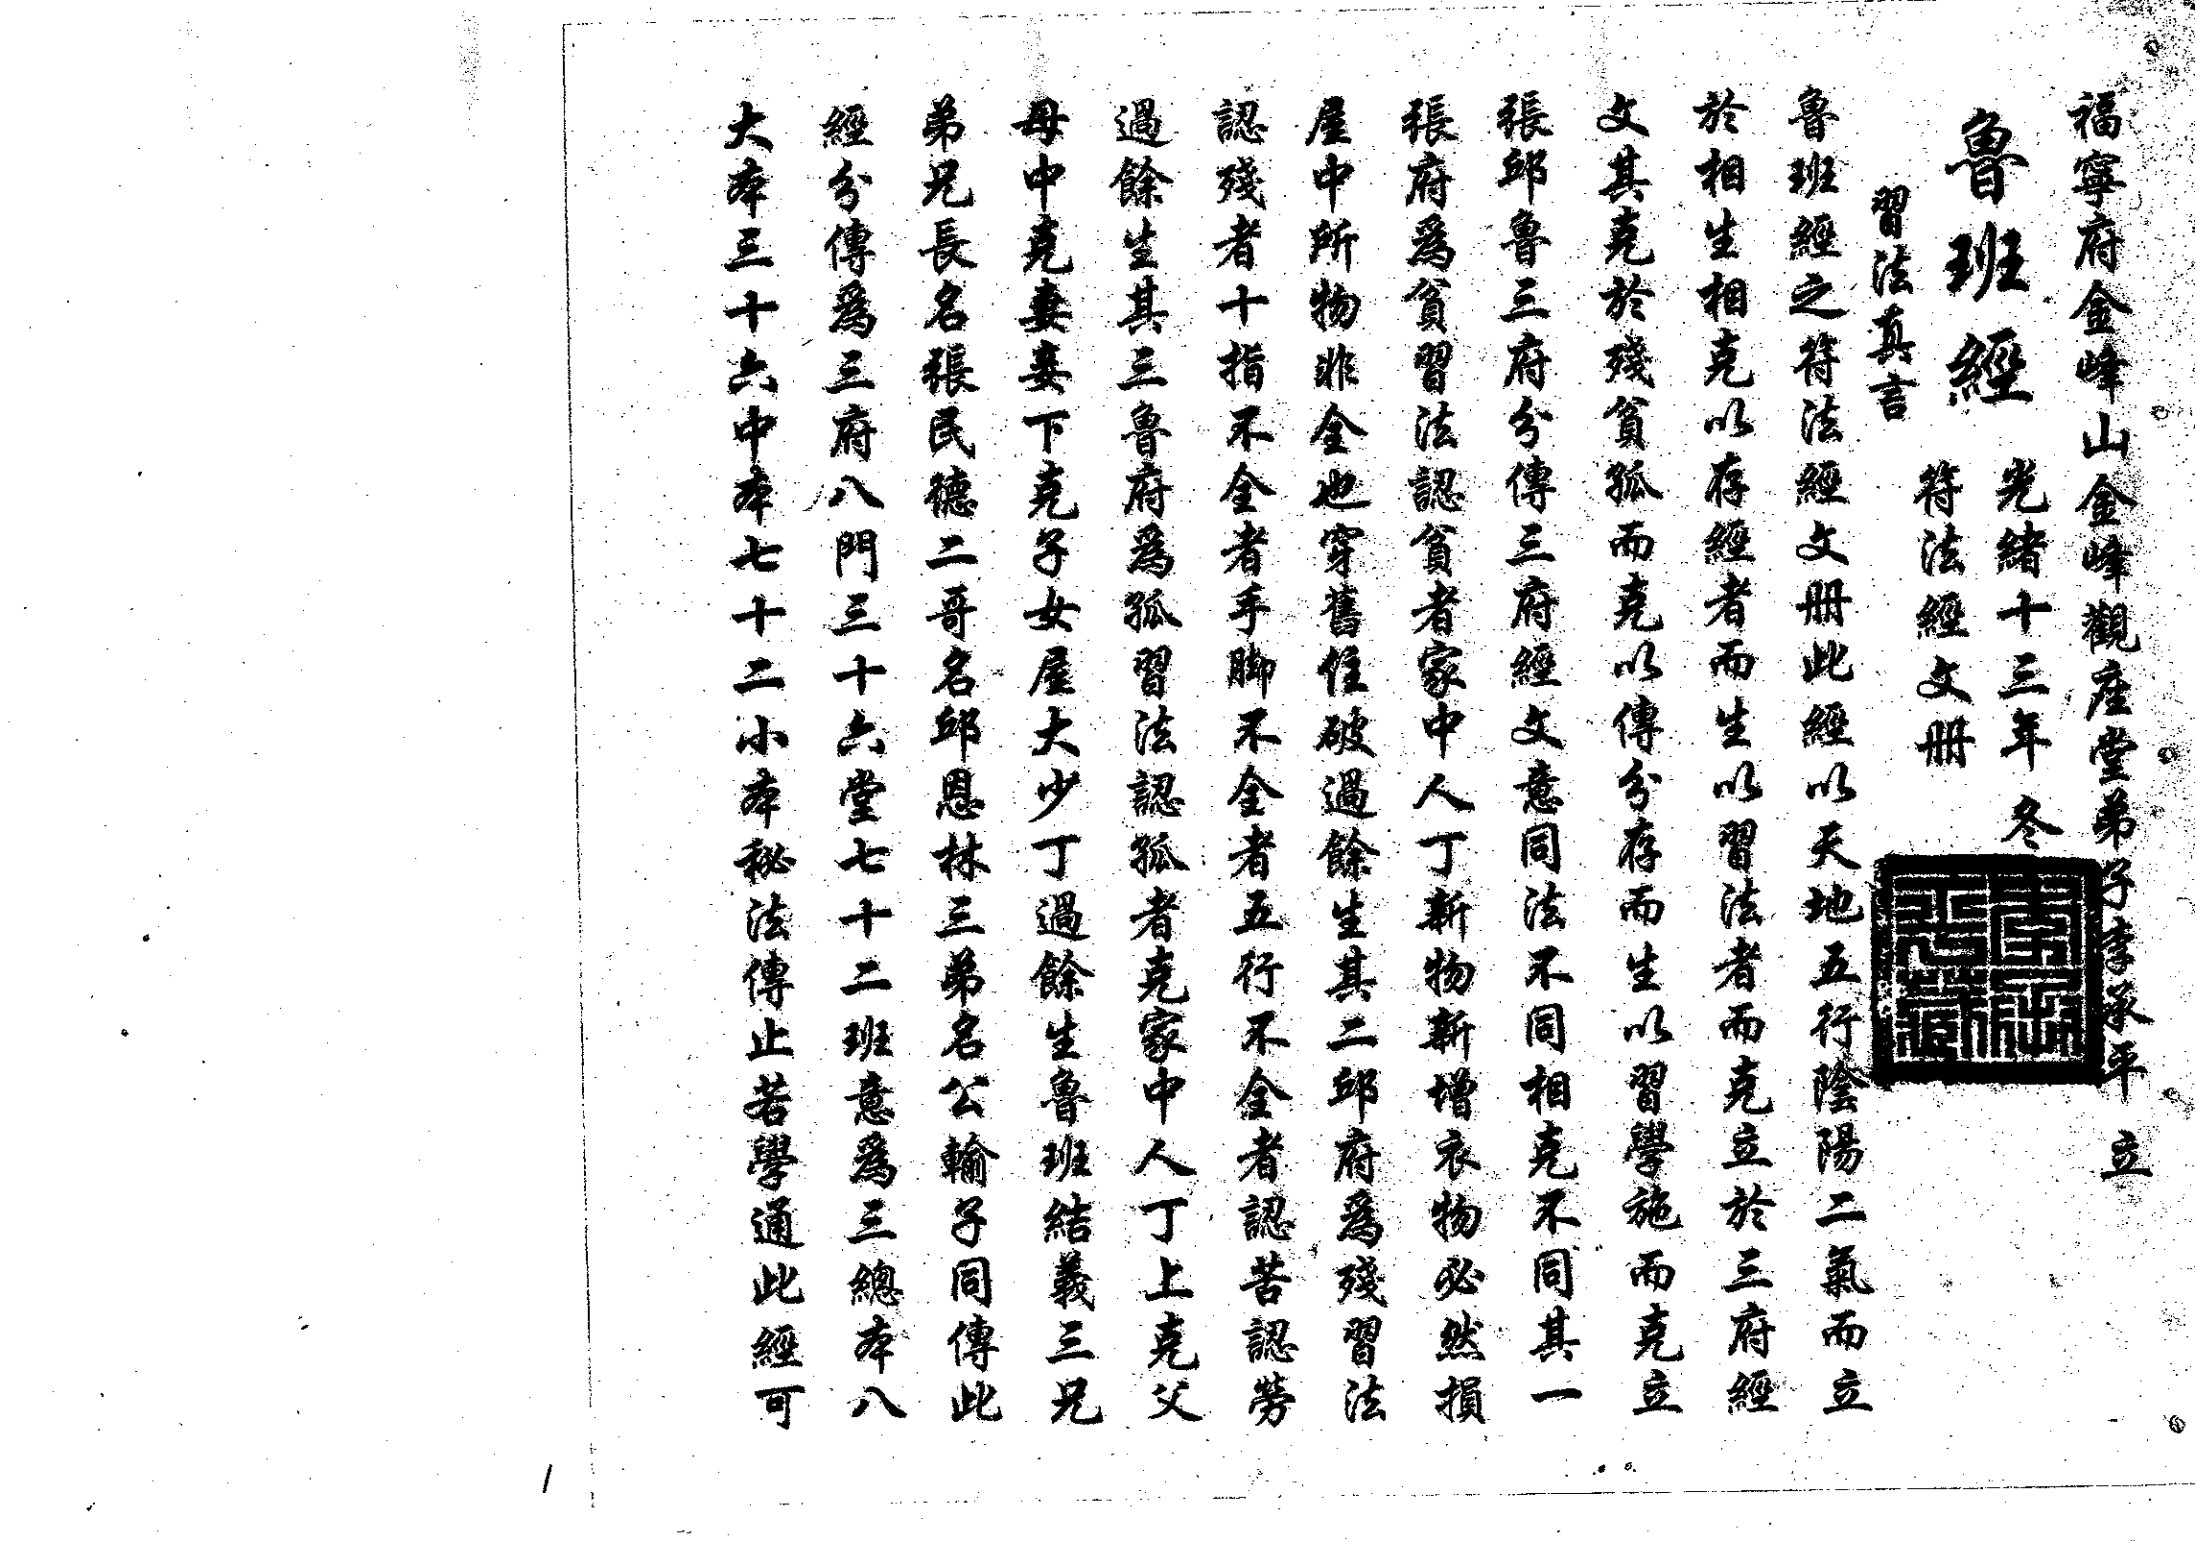 福寧府金峰山金峰觀座堂弟子李承平 立
魯班經
光緒十三年 冬
符法經文册
習法真言
魯班經之符法經文册此經以天地五行陰陽二氣而立
於相生相克以存經者而生以習法者而克立於三府經
文其克於殘貧孤而克以傳分存而生以習學施而克立
張邱魯三府分傳三府經文意同法不同相克不同其一
張府為貧習法認貧者家中人丁新物新增衣物必然損
屋中所物非全也穿舊住破過餘生其二邱府為殘習法
認殘者十指不全者手脚不全者五行不全者認苦認勞
過餘生其三魯府為孤習法認孤者克家中人丁上克父
母中克妻妾下克子女屋大少丁過餘生魯班結義三兄
弟兄長名張民德二哥名邱恩林三弟名公輸子同傳此
經分傳為三府八門三十六堂七十二班意為三總本八
大本三十六中本七十二小本秘法傳止若學通此經可